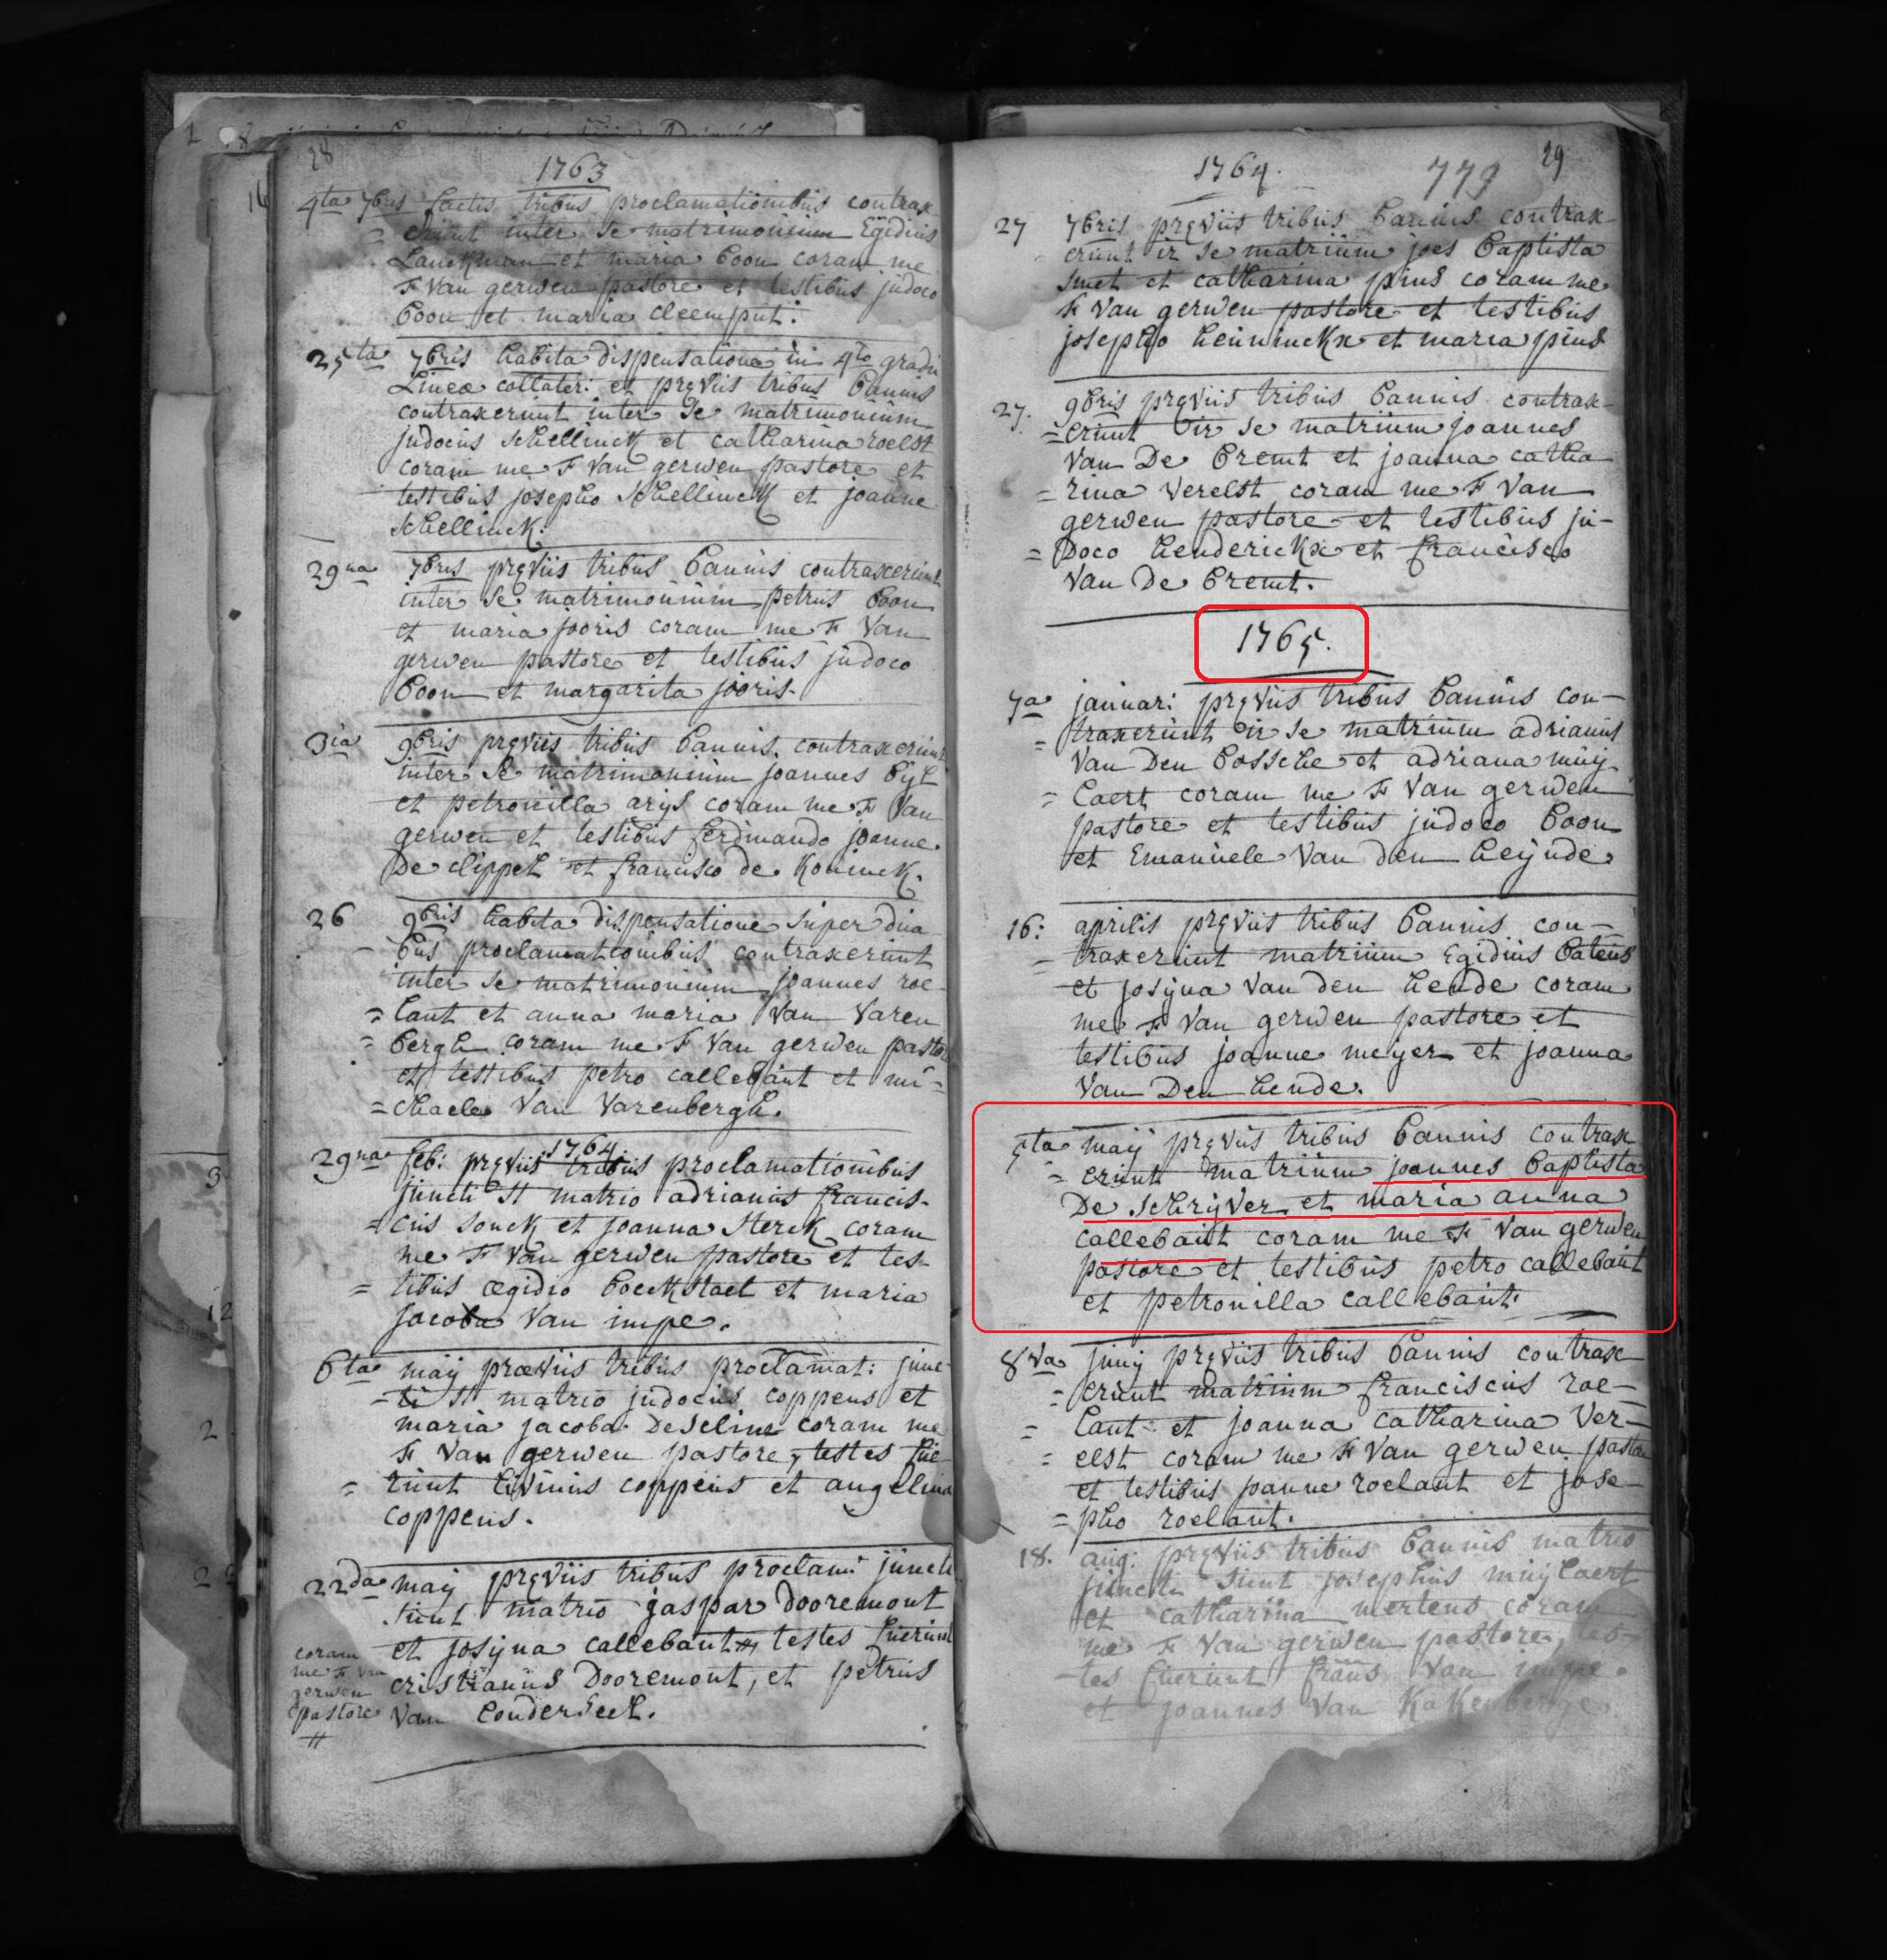 28
1763
4ta 7bris factis tribus proclamationibus contrax
= erunt inter se matrimonium Egidius
Lauckman et maria Coon coram me
F Van gerwen pastore et testibus judoco
Coon et maria cleemput.
25ta 7bris habita dispensatione in 4to gradu
Lineæ collater: et præviis tribus bannis
contraxerunt inter se matrimonium
judocus schellinck et catharina roelst
coram me F Van gerwen pastore et
testibus josepho schellinck et joanne
schellinck.
29na 7bris præviis tribus bannis contraxerunt
inter se matrimonium petrus Coon
et maria jooris coram me F Van
gerwen pastore et testibus judoco
Coon et margarita jooris.
3ia 9bris præviis tribus bannis contraxerunt
inter se matrimonium joannes Cyl
et petronilla arijs coram me F Van
gerwen et testibus ferdinando joanne
De clippel et francisco de Koninck.
26 9bris habita dispensatione super dua
- bus proclamationibus contraxerunt
inter se matrimonium joannes roe
= lant et anna maria Van Varen
= bergh coram me F Van gerwen pastore
et testibus petro callebaut et mi=
= chaele Van Varenbergh.
1764
29na feb: prævijs tribus proclamationibus
juncti st matrio adrianus francis-
= cus sonck et joanna sterck coram
me F Van gerwen pastore et tes-
= tibus ægidio boeckstaet et maria
jacoba Van impe.
6ta maij præviis tribus proclamat: junc
= ti st matrio judocus coppens et
maria jacoba Deseline coram me
F Van gerwen pastore, testes fue
= runt Livinus coppens et angelina
coppens.
22da maij prævijs tribus proclam: juncti
sunt matrio gaspar Dooremont
et josijna callebaut # testes fuerunt
cristianus Dooremont, et petrus
Van
coram
me F Van
gerwen
pastore
#
29
1764.
779
27 7bris prævijs tribus bannis contrax-
erunt ir se matrium joes baptista
smet et catharina pius coram me
F Van gerwen pastore et testibus
josepho henninckx et maria pius
27. 9bris prævijs tribus bannis contrax-
= erunt ir se matrium joannes
Van De Cremt et joanna catha
= rina Verelst coram me F Van
gerwen pastore et testibus ju-
= Doco henderickx et francisco
Van De Cremt.
1765.
7a januar: prævijs tribus bannis con-
= traxerunt ir se matrium adrianus
Van Den bossche et adriana muij-
= laert coram me F Van gerwen
pastore et testibus judoco Coon
et Emanuele Van den heijnde.
16: aprilis prævijs tribus bannis con-
- traxerunt matrium Egidius bateus
et josijna Van den hende coram
me F Van gerwen pastore et
testibus joanne meyer et joanna
Van Den hende.
5ta maij prævijs tribus bannis contrax
= erunt matrium joannes baptista
De schrijver et maria anna
callebaut coram me F Van gerwen
pastore et testibus petro callebaut
et petronilla callebaut.
8va junij prævijs tribus bannis contrax-
= erunt matrium franciscus roe-
= lant et joanna catharina Ver-
= elst coram me F Van gerwen pastore
et testibus joanne roelant et jose-
= pho roelant.
18. aug: prævijs tribus bannis matrio
juncti sunt josephus muijlaert
et catharina mertens coram
me F Van gerwen pastore, tes
- tes fuerunt frans Van impe
et joannes Van Kakenberge.